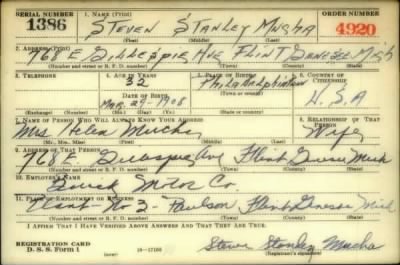 SERIAL NUMBER 1. NAME (Print) ORDER NUMBER
1386 STEVEN STANLEY MUCHA 4920
(First) (Middle) (Last)
2. ADDRESS (Print)
768 E. AVE FLINT GENESEE MICH
(Number and street or R. F. D. number) (Town) (County) (State)
3. TELEPHONE 4. AGE IN YEARS 5. PLACE OF BIRTH 6. COUNTRY OF CITIZENSHIP
32 Philadelphia U.S.A
DATE OF BIRTH (Town or county)
MAR. 29-1908
(Exchange) (Number) (Mo.) (Day) (Yr.) (State or country)
7. NAME OF PERSON WHO WILL ALWAYS KNOW YOUR ADDRESS 8. RELATIONSHIP OF THAT PERSON
Mrs Helen Mucha Wife
(Mr., Mrs., Miss) (First) (Middle) (Last)
9. ADDRESS OF THAT PERSON
768 E. Ave Flint Mich
(Number and street or R. F. D. number) (Town) (County) (State)
10. EMPLOYER'S NAME
Buick Motor Co.
11. PLACE OF EMPLOYMENT OR BUSINESS
No 2- Flint Genesee Mich
(Number and street or R. F. D. number) (Town) (County) (State)
I AFFIRM THAT I HAVE VERIFIED ABOVE ANSWERS AND THAT THEY ARE TRUE.
REGISTRATION CARD
D. S. S. Form 1 Steve Stanley Mucha
(Registrant's signature)